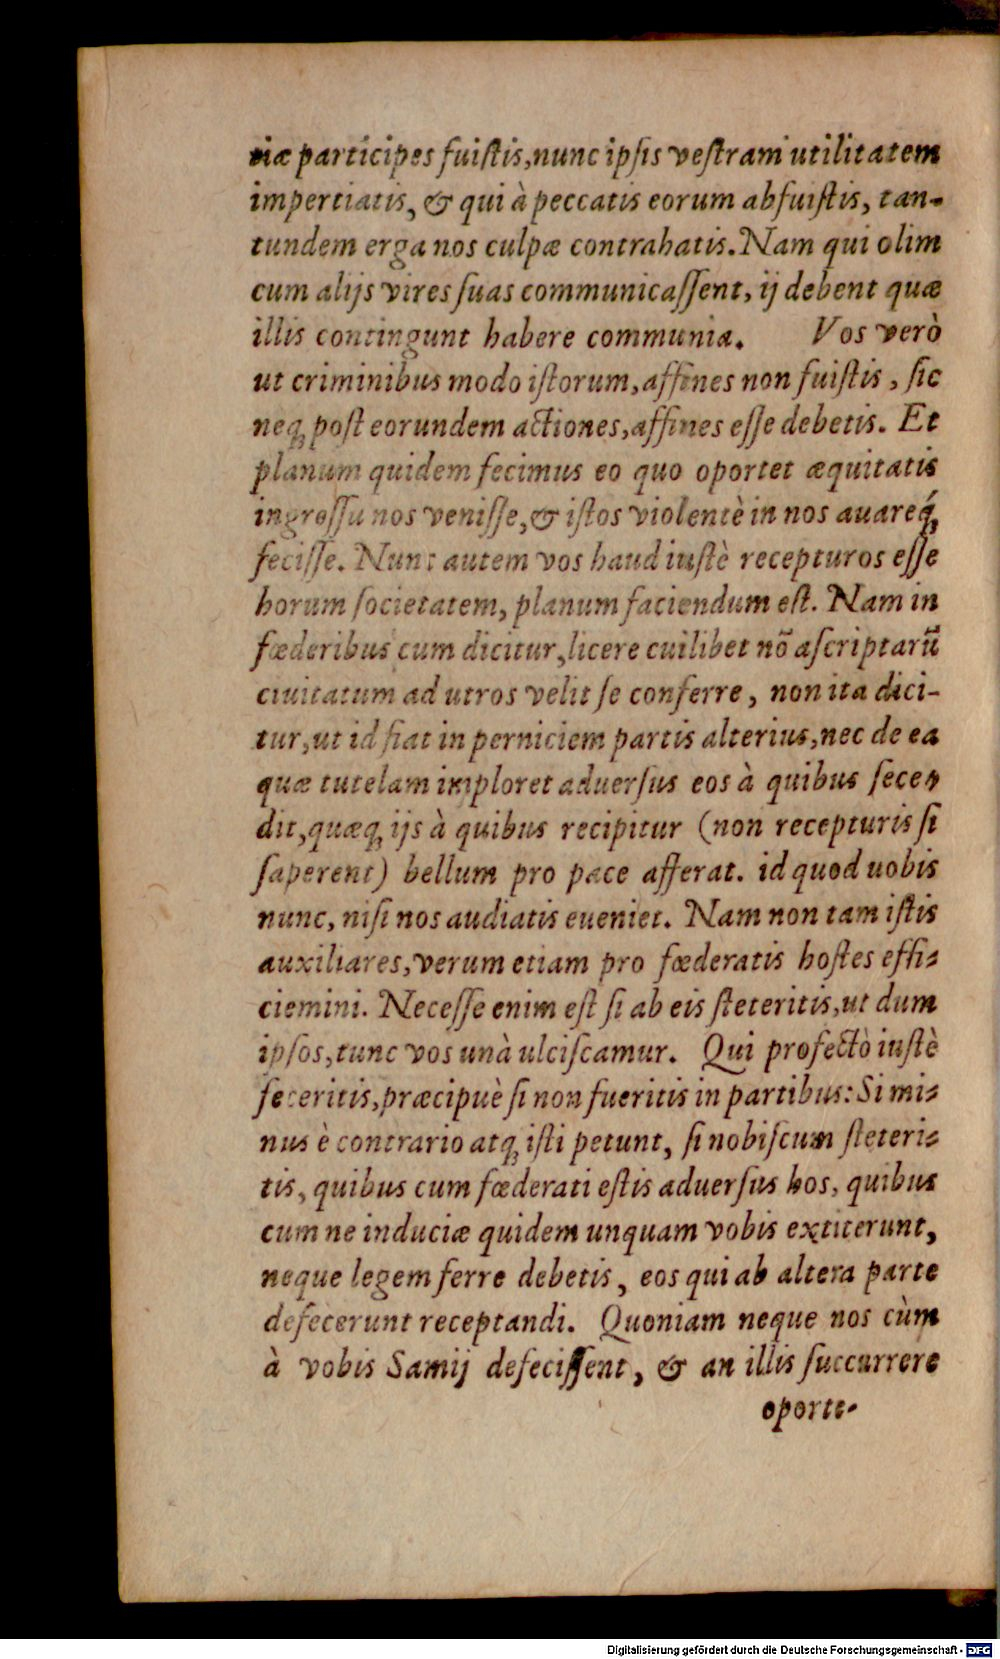 tiæ participes fuiſtis, nunc ipſis veſtram utilitatem
impertiatis, & qui à peccatis eorum abfuiſtis, tan-
tundem erga nos culpæ contrahatis. Nam qui olim
cum alijs vires ſuas communicaſſent, ij debent quæ
illis contingunt habere communia. Vos verò
ut criminibus modo iſtorum, affines non fuiſtis, ſic
neq; poſt eorundem actiones, affines eſſe debetis. Et
planum quidem fecimus eo quo oportet æquitatis
ingreſſu nos veniſſe, & iſtos violentè in nos auareq́;
feciſſe. Nunc autem vos haud iuſtè recepturos eſſe
horum ſocietatem, planum faciendum eſt. Nam in
fœderibus cum dicitur, licere cuilibet nõ aſcriptarũ
ciuitatum ad utros velit ſe conferre, non ita dici-
tur, ut id fiat in perniciem partis alterius, nec de ea
quæ tutelam imploret aduerſus eos à quibus ſece-
dit, quæq; ijs à quibus recipitur (non recepturis ſi
ſaperent) bellum pro pace afferat. id quod uobis
nunc, niſi nos audiatis eueniet. Nam non tam iſtis
auxiliares, verum etiam pro fœderatis hoſtes effi-
ciemini. Neceſſe enim eſt ſi ab eis ſteteritis, ut dum
ipſos, tunc vos unà ulciſcamur. Qui profectò iuſtè
feceritis, præcipuè ſi non fueritis in partibus: Si mi-
nus è contrario atq; iſti petunt, ſi nobiſcum ſteteri-
tis, quibus cum fœderati eſtis aduerſus hos, quibus
cum ne induciæ quidem unquam vobis extiterunt,
neque legem ferre debetis, eos qui ab altera parte
defecerunt receptandi. Quoniam neque nos cùm
à vobis Samij defeciſſent, & an illis ſuccurrere
oporte-
Digitalisierung gefördert durch die Deutsche Forschungsgemeinschaft - DFG